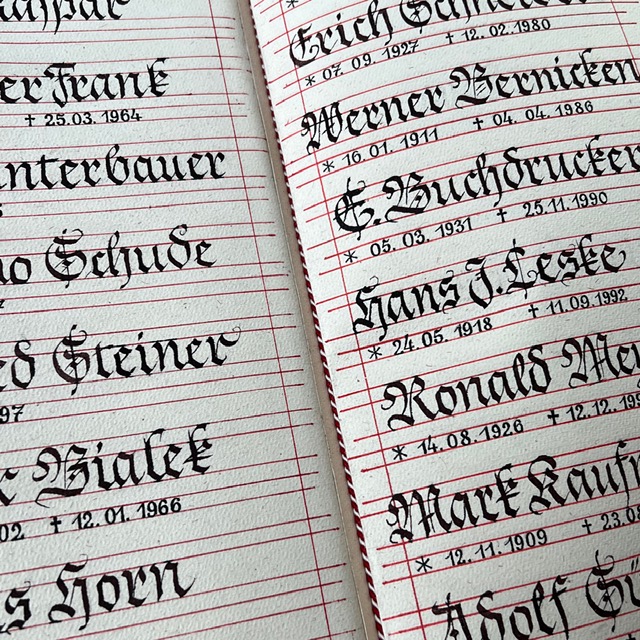 er Frank
† 25.03.1964
nterbauer
o Schude
ed Steiner
97
Bialek
02 † 12.01.1966
s Horn
* 
Erich
* 07.09.1927 † 12.02.1980
Werner Bernicken
* 16.01.1911 † 04.04.1986
E. Buchdrucker
* 05.03.1931 † 25.11.1990
Hans J. Leske
* 24.05.1918 † 11.09.1992
Ronald Me
* 14.08.1926 † 12.12.199
Mark Kauf
* 12.11.1909 † 23.0
Adolf